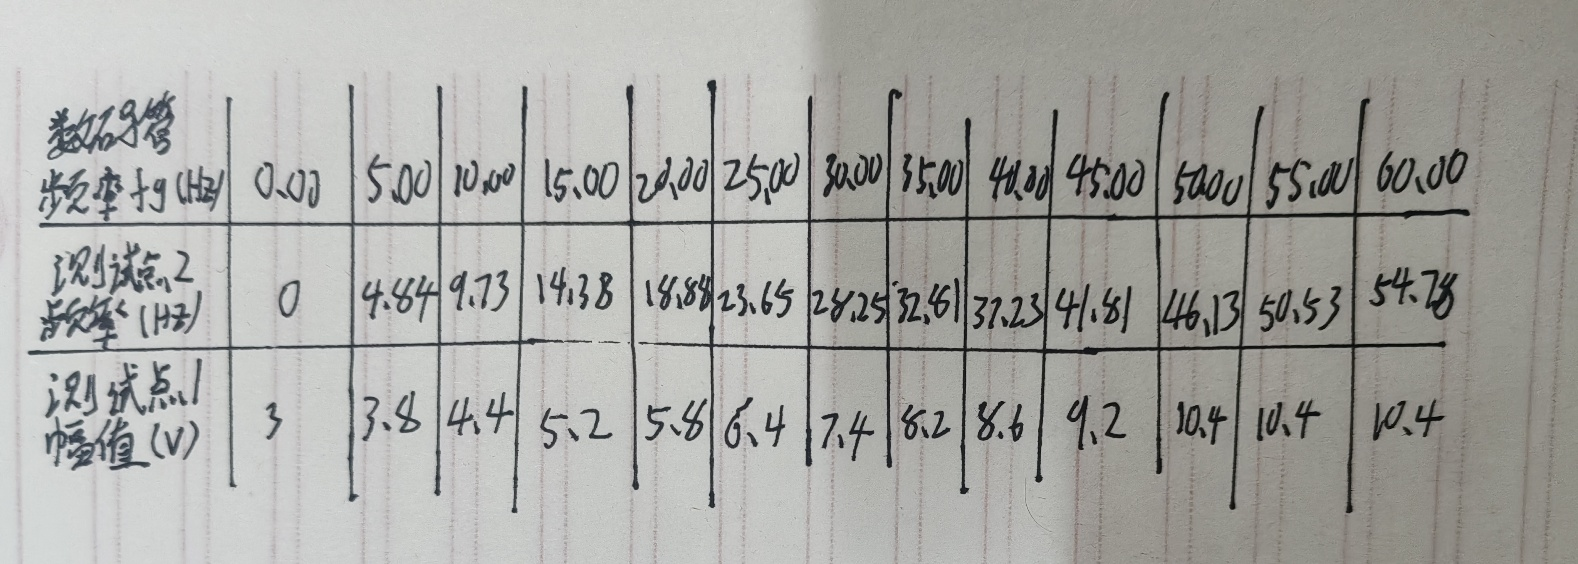 数码管
频率fg(Hz) 0.00 5.00 10.00 15.00 20.00 25.00 30.00 35.00 40.00 45.00 50.00 55.00 60.00
测试点2
频率(Hz) 0 4.84 9.73 14.38 18.88 23.65 28.25 32.81 37.23 41.81 46.13 50.53 54.78
测试点1
幅值(V) 3 3.8 4.4 5.2 5.8 6.4 7.4 8.2 8.6 9.2 10.4 10.4 10.4